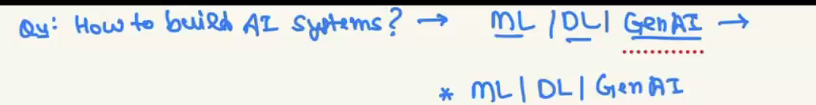 Qy: How to build AI systems? → ML | DL | GenAI →
* ML | DL | GenAI